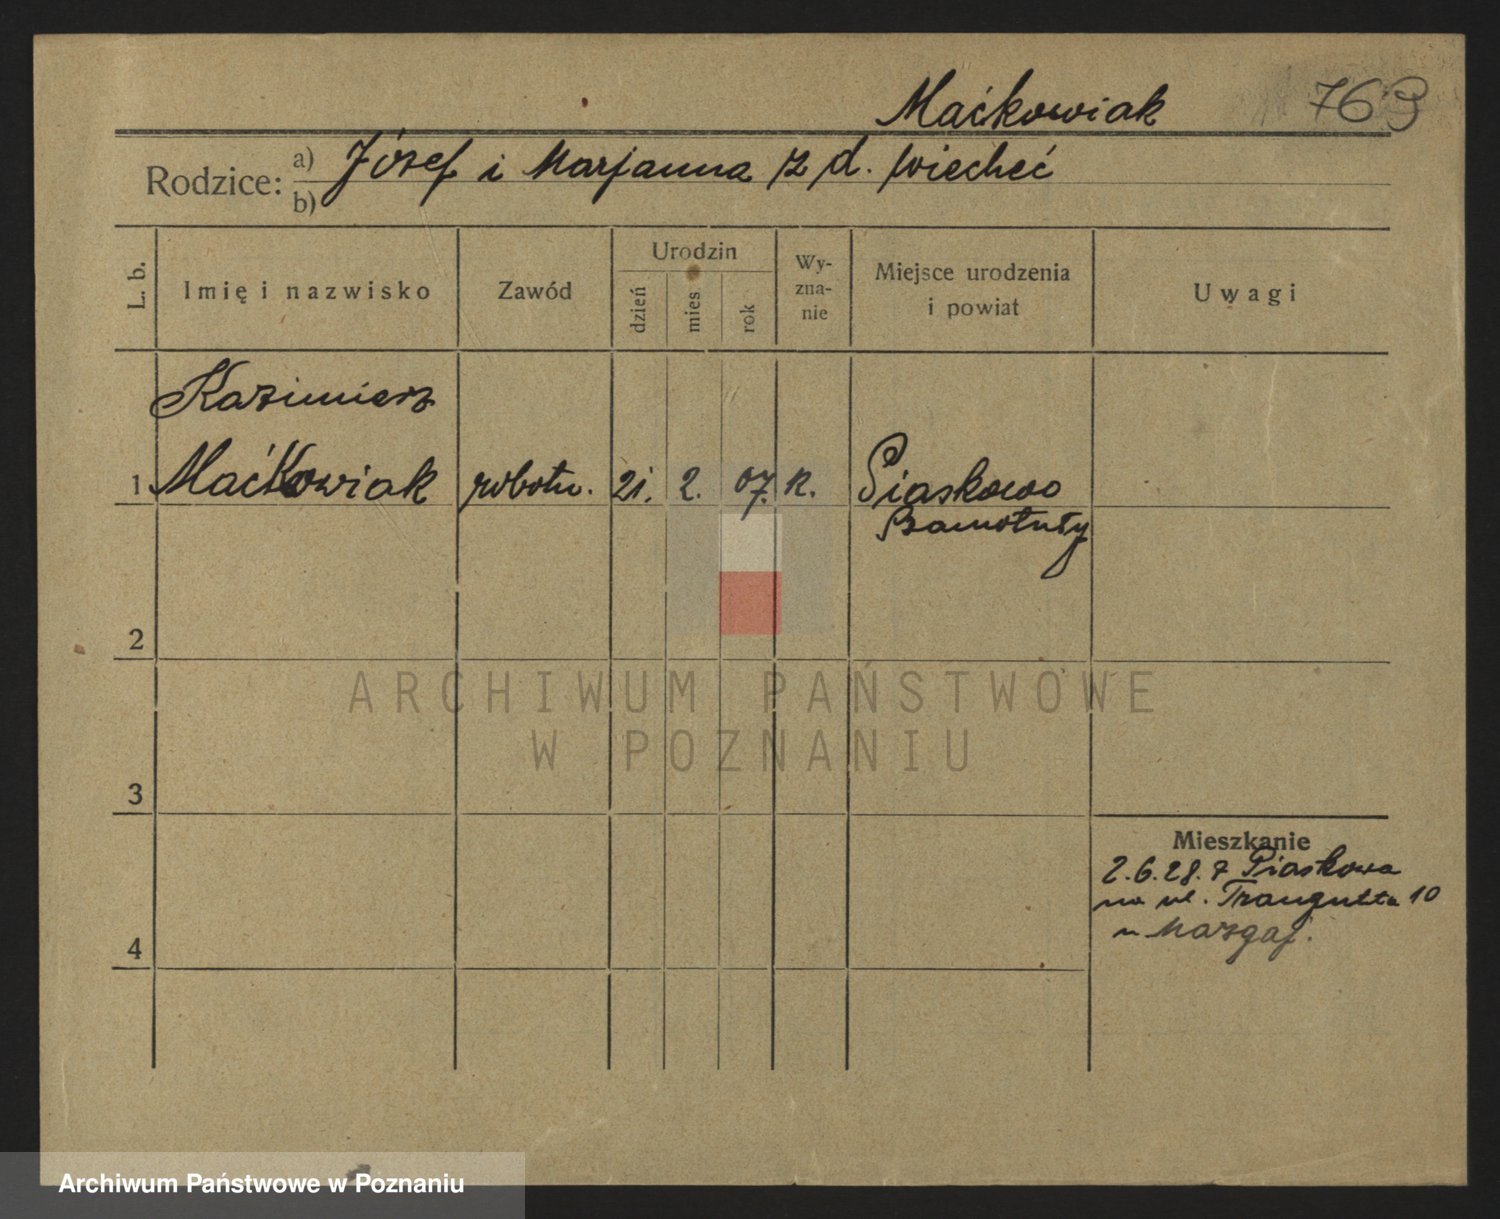 Maćkowiak 763
Rodzice: a) Józef i Marjanna z d. Wiecheć
b)
L. b.
Imię i nazwisko
Zawód
Urodzin
dzień
mies
rok
Wy-
zna-
nie
Miejsce urodzenia
i powiat
Uwagi
Kazimierz
1 Maćkowiak robotn. 21. 2. 07. k. Piaskowo
Szamotuły
2
ARCHIWUM PAŃSTWOWE
W POZNANIU
3
Mieszkanie
2.6.28. z Piaskowa
na ul. Traugutta 10
u Mazgaj.
4
Archiwum Państwowe w Poznaniu